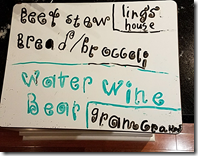 Beef stew
lings
house
Bread/broccoli
water wine
Bear